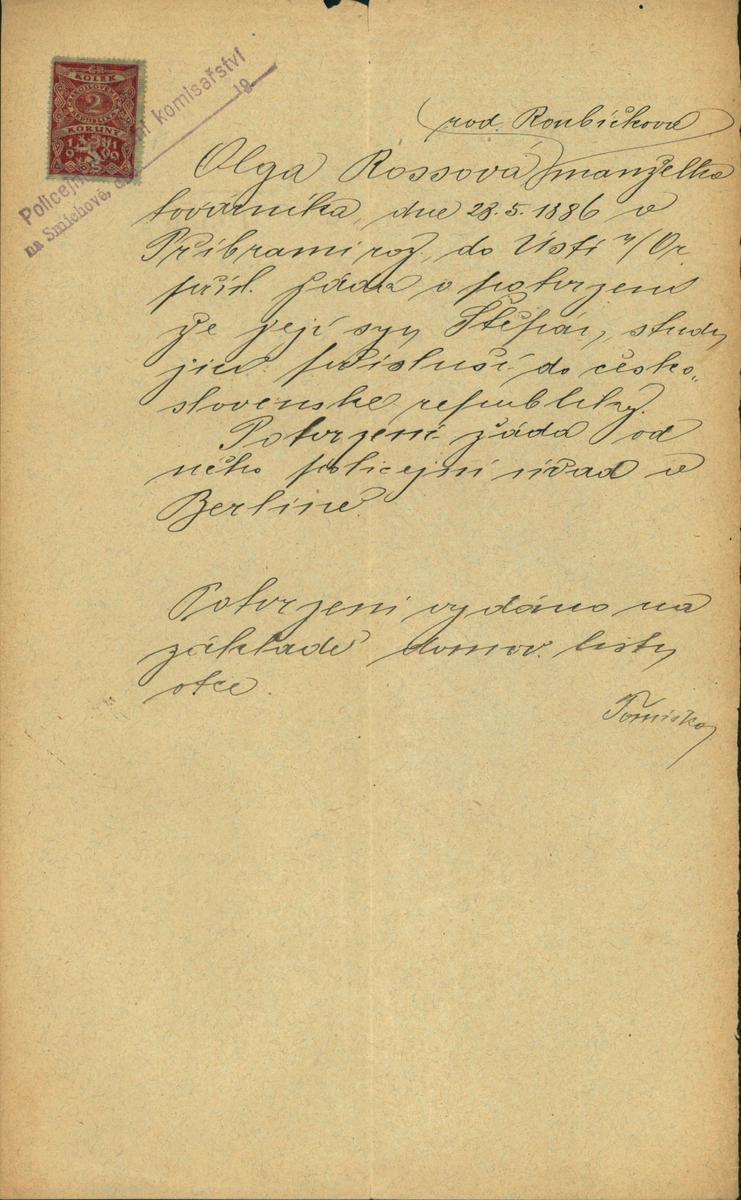 KOLEK
2
KORUNY
1919
Policejní komisařství
na Smíchově, 19
rod. Roubíčková
Olga Rossová manželka
továrníka, dne 28.5.1886 v
Příbrami roz. do Ústí n/Or.
přísl. žádá o potvrzení
že její syn Štěpán, studu
jící přísluší do česko„
slovenské republiky.
Potvrzení žádá od
něho policejní úřad v
Berlíně.
Potvrzení vydáno na
základě domov. listu
otce.